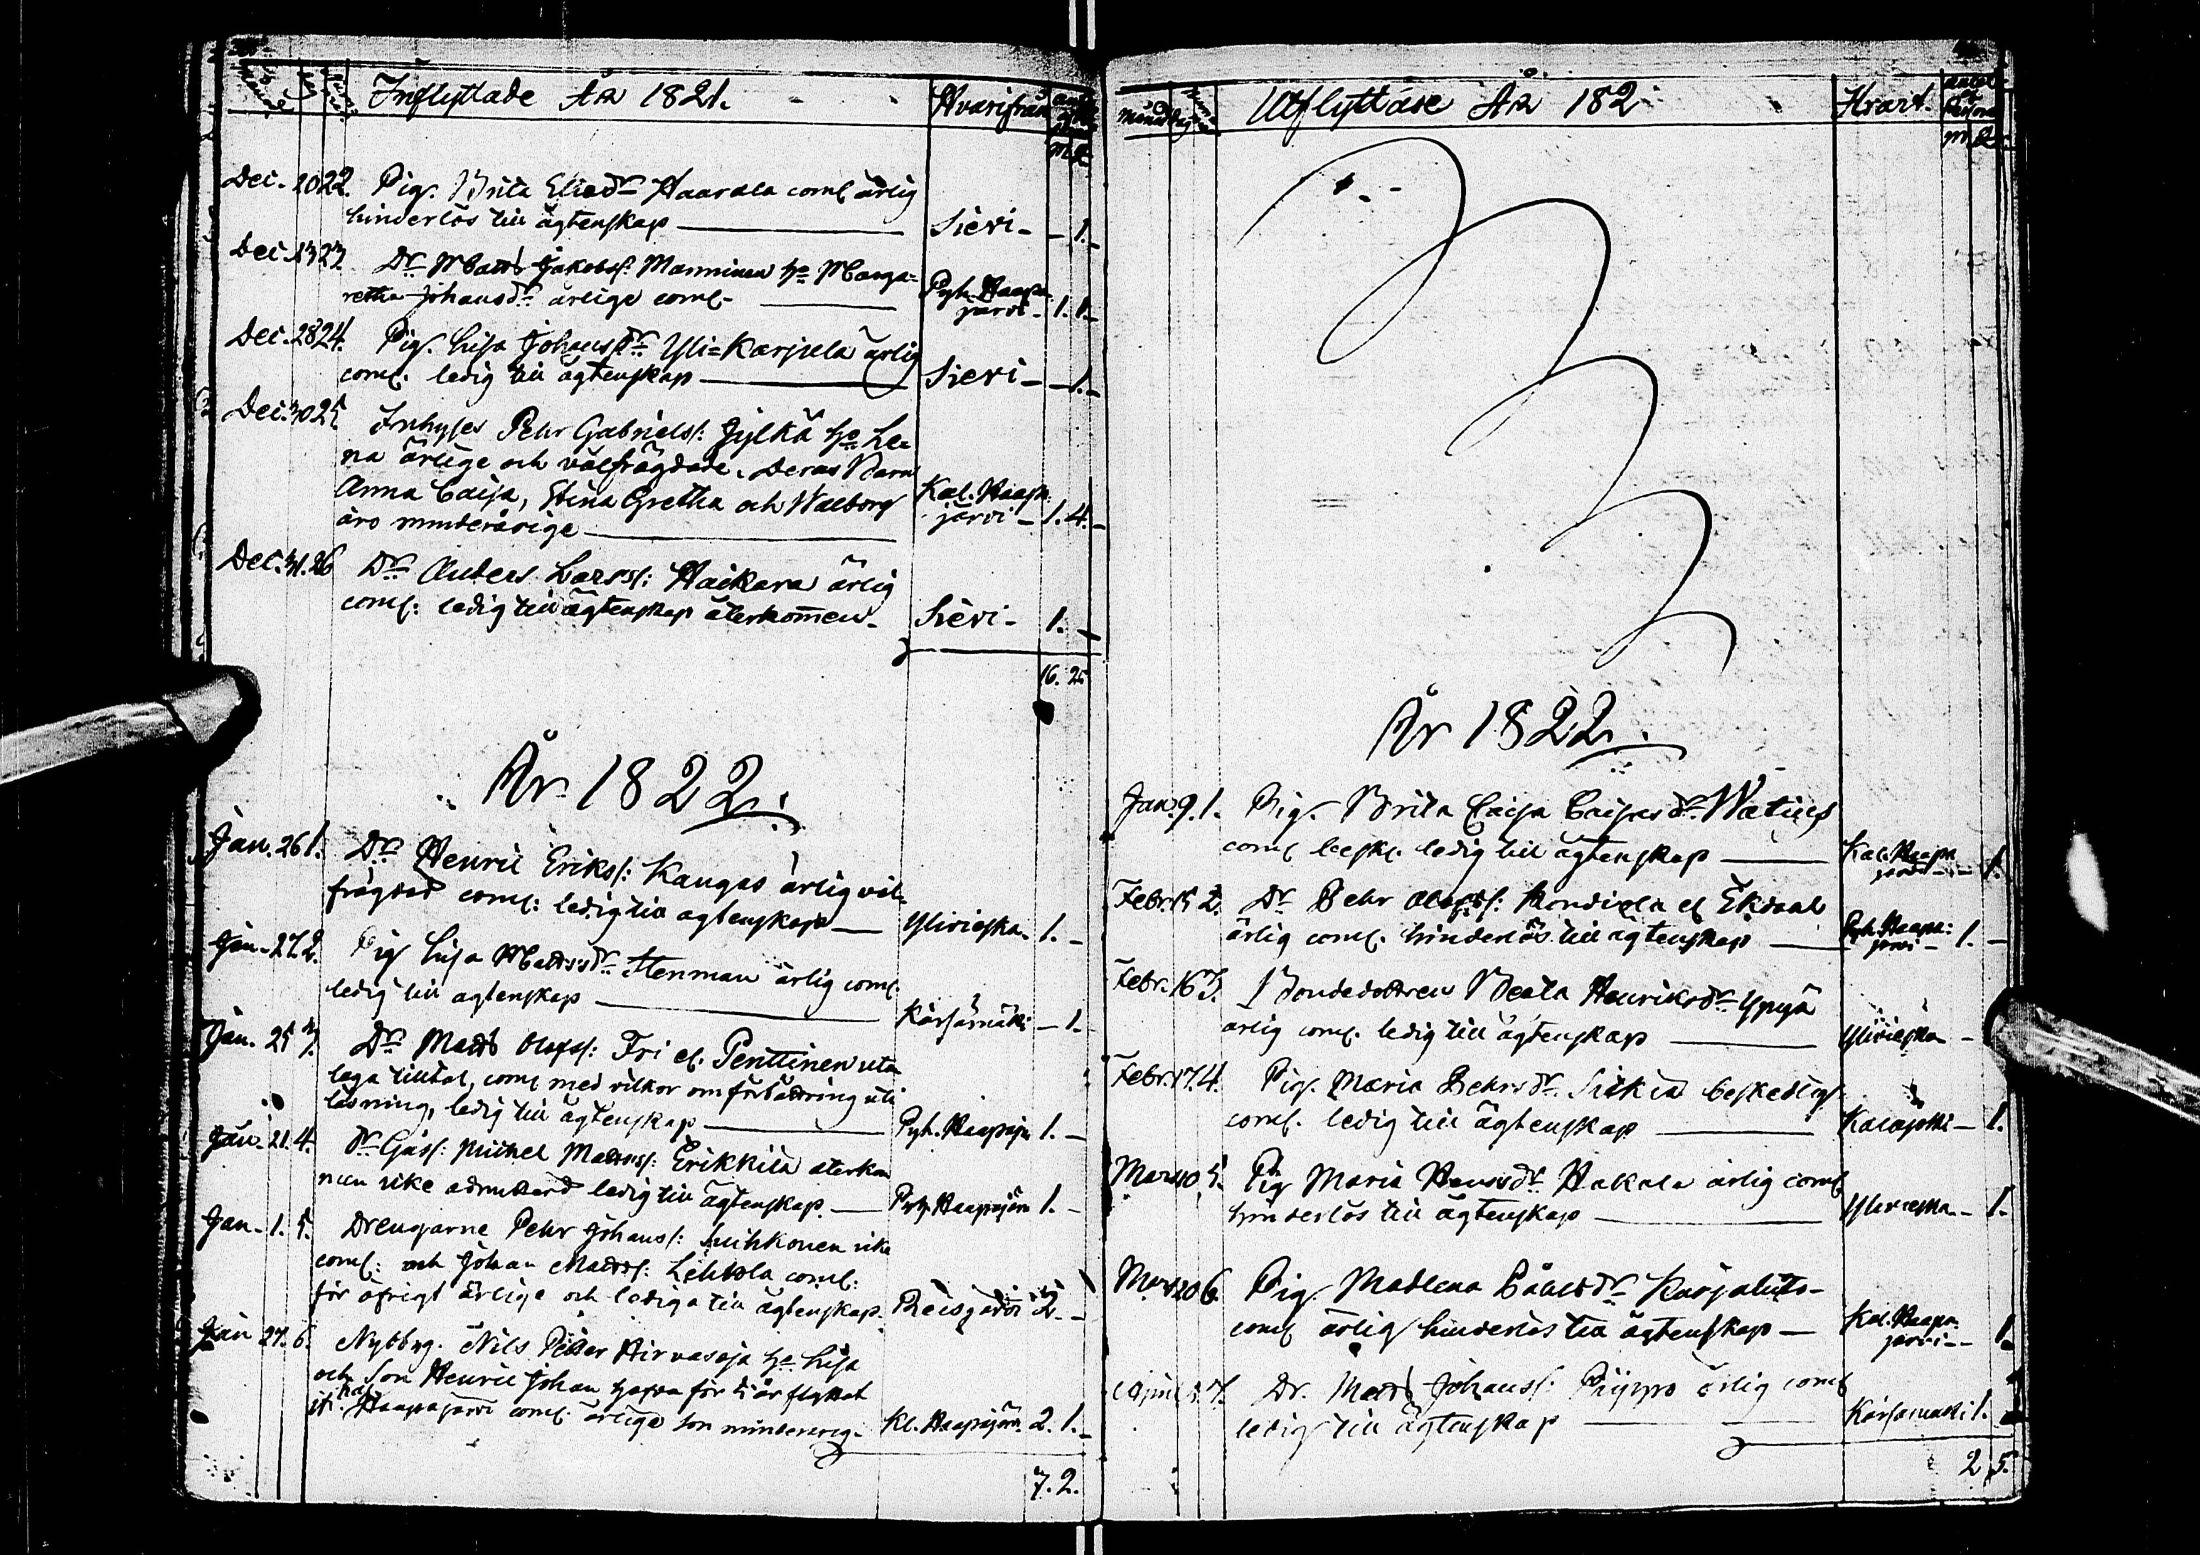 Inflyttade År 1821. Hvarifrån
M. Q.
Dec. 20 22. Pig. Brita Eliedr Haarala com. ärlig
hinderlös till ägtenskap — Sievi - - 1. -
Dec. 23 23. Dr Matts Jakobss. Manninen h. Marga=
retha Johansdr ärlige com. — Pyh. Haapa
järvi - 1. 1. -
Dec. 28 24. Pig. Lisa Johansdr Yli=Karjula ärlig
com. ledig till ägtenskap — Sievi - - 1. -
Dec. 30 25. Inhyses Pehr Gabrielss: Jylkä h. Le=
na ärlige och välfrägdade. Deras Barn
Anna Caisa, Stina Gretha och Walborg Kal. Haapa
äro minderårige — järvi - 1. 4. -
Dec. 31. 26 Dr Anders Larss: Haikara ärlig
com: ledig till ägtenskap återkommen - Sievi - 1. -
16. 25
År 1822.
Jan. 26 1. Dr Henric Erikss: Kangas ärlig väl=
frägdad com: ledig till ägtenskap — Ylivieska - 1. -
Jan. 27. 2. Pig Lisa Mattsdr Stenman ärlig com.
ledig till ägtenskap — Kärsämäki - 1.
Jan. 25 3. Dr Matts Olofss: Fri el. Penttinen uta
laga tilltal, com. med vilkor om förbättring uti
läsning, ledig till ägtenskap — Pyh. Haapajä 1. -
Jan. 21. 4. Dr Gåss: Michel Matss: Erikkilä återkom
men icke admitterad ledig till ägtenskap. — Pyh. Haapajärv 1. -
Jan. 1. 5. Drengarne Pehr Johanss: Suihkonen icke
com: och Johan Matss: Lehtola com:
för öfrigt ärlige och lediga till ägtenskap. Reisjärvi 2. -
Jan 27. 6. Nybbyg. Nils Petter Hirvasoja h. Lisa
och Son Henric Johan för flyttat
Haapajärvi com. ärlige son minderårig. Kl. Haapajärv. 2. 1. -
7. 2.
Utflyttade År 182 Hvart.
Månad Dag M. Q.
År 1822.
Jan. 9. 1. Pig. Brita Caisa Caisasdr Watius
com. beskl. ledig till ägtenskap — Kal. Haapa
järvi - - 1.
Febr. 15 2. Dr Pehr Olofss: el Ekdahl
ärlig com. hinderlös till ägtenskap — Pyh. Haapa:
järvi - 1. -
Febr. 16 3. Bondedottren Beata Henriksdr Ypyä
ärlig com. ledig till ägtenskap — Ylivieska -
Febr. 17. 4. Pig. Maria Pehrsdr beskedlig
com. ledig till ägtenskap — Kalajoki - 1.
Mars 10 5. Pig Maria Hansdr Hakala ärlig com.
hinderlös till ägtenskap — Ylivieska - 1.
Mars 20 6. Pig Madlena Påhlsdr Karjaluoto -
com. ärlig hinderlös till ägtenskap — Kal. Haapa
järvi - - 1.
April 7. Dr. Matts Johanss: Piippo ärlig com.
ledig till ägtenskap — Kärsämäki 1.
2 5.